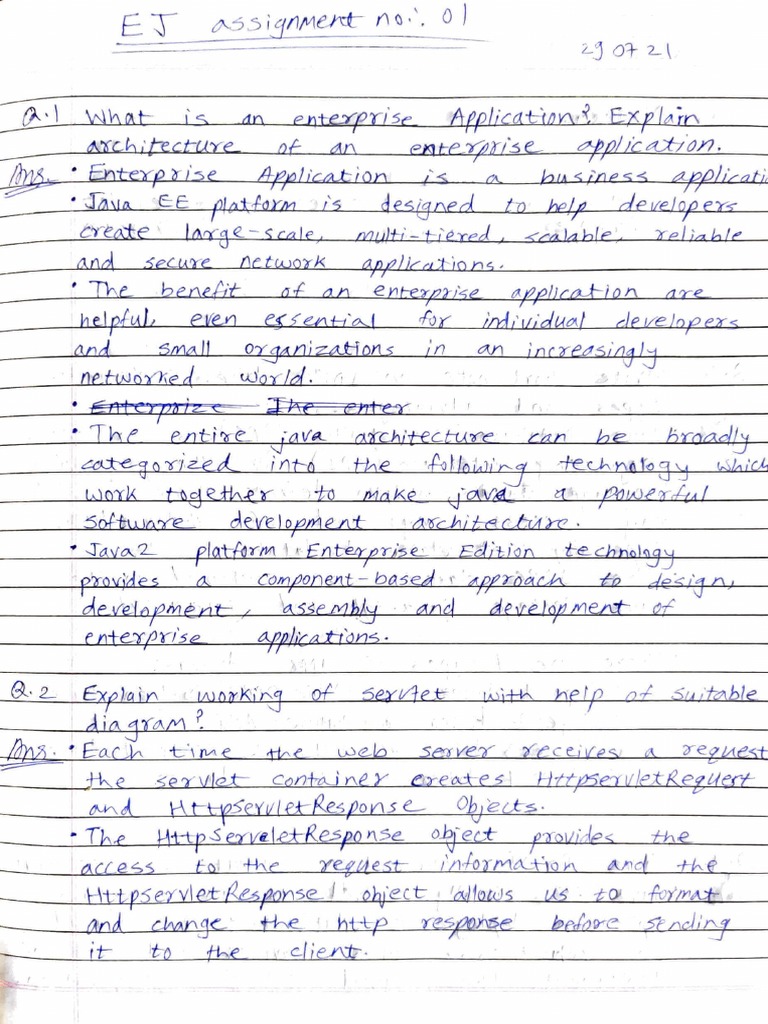 EJ assignment no.: 01
29 07 21
Q.1 What is an enterprise Application? Explain
architecture of an enterprise application.
Ans. • Enterprise Application is a business applicatio
• Java EE platform is designed to help developers
create large-scale, multi-tiered, scalable, reliable
and secure network applications.
• The benefit of an enterprise application are
helpful, even essential for individual developers
and small organizations in an increasingly
networked world.
• Enterprize The enter
• The entire java architecture can be broadly
categorized into the following technology which
work together to make java a powerful
software development architecture.
• Java2 platform Enterprise Edition technology
provides a component-based approach to design,
development, assembly and development of
enterprise applications.
Q.2 Explain working of servlet with help of suitable
diagram?
Ans. • Each time the web server receives a request
the servlet container creates HttpservletRequest
and HttpservletResponse Objects.
• The HttpServeletResponse object provides the
access to the request information and the
HttpservletResponse object allows us to format
and change the http response before sending
it to the client.